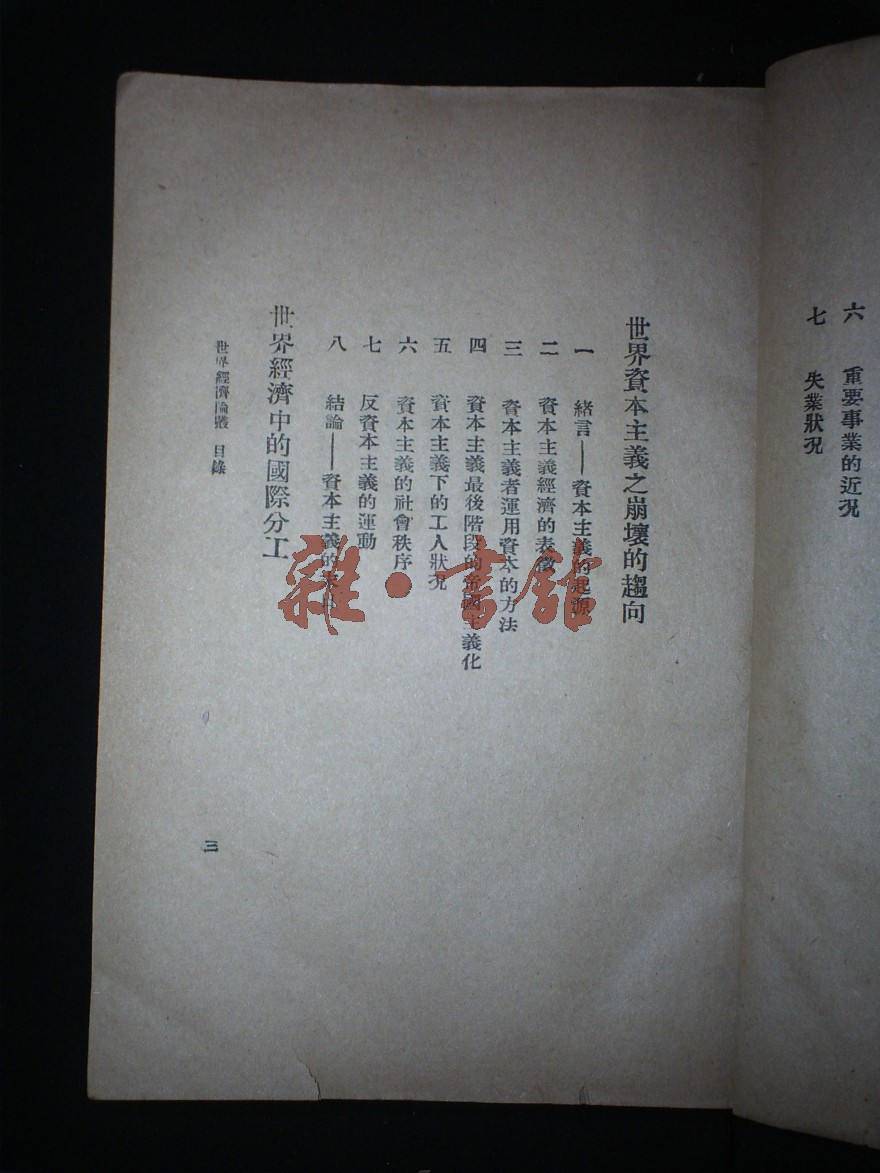 六　重要事業的近況
七　失業狀況
世界資本主義之崩壞的趨向
一　緒言——資本主義的起源
二　資本主義經濟的表徵
三　資本主義者運用資本的方法
四　資本主義最後階段的帝國主義化
五　資本主義下的工人狀況
六　資本主義的社會秩序
七　反資本主義的運動
八　結論——資本主義的
世界經濟中的國際分工
世界經濟論叢　目錄
三
雜·書館